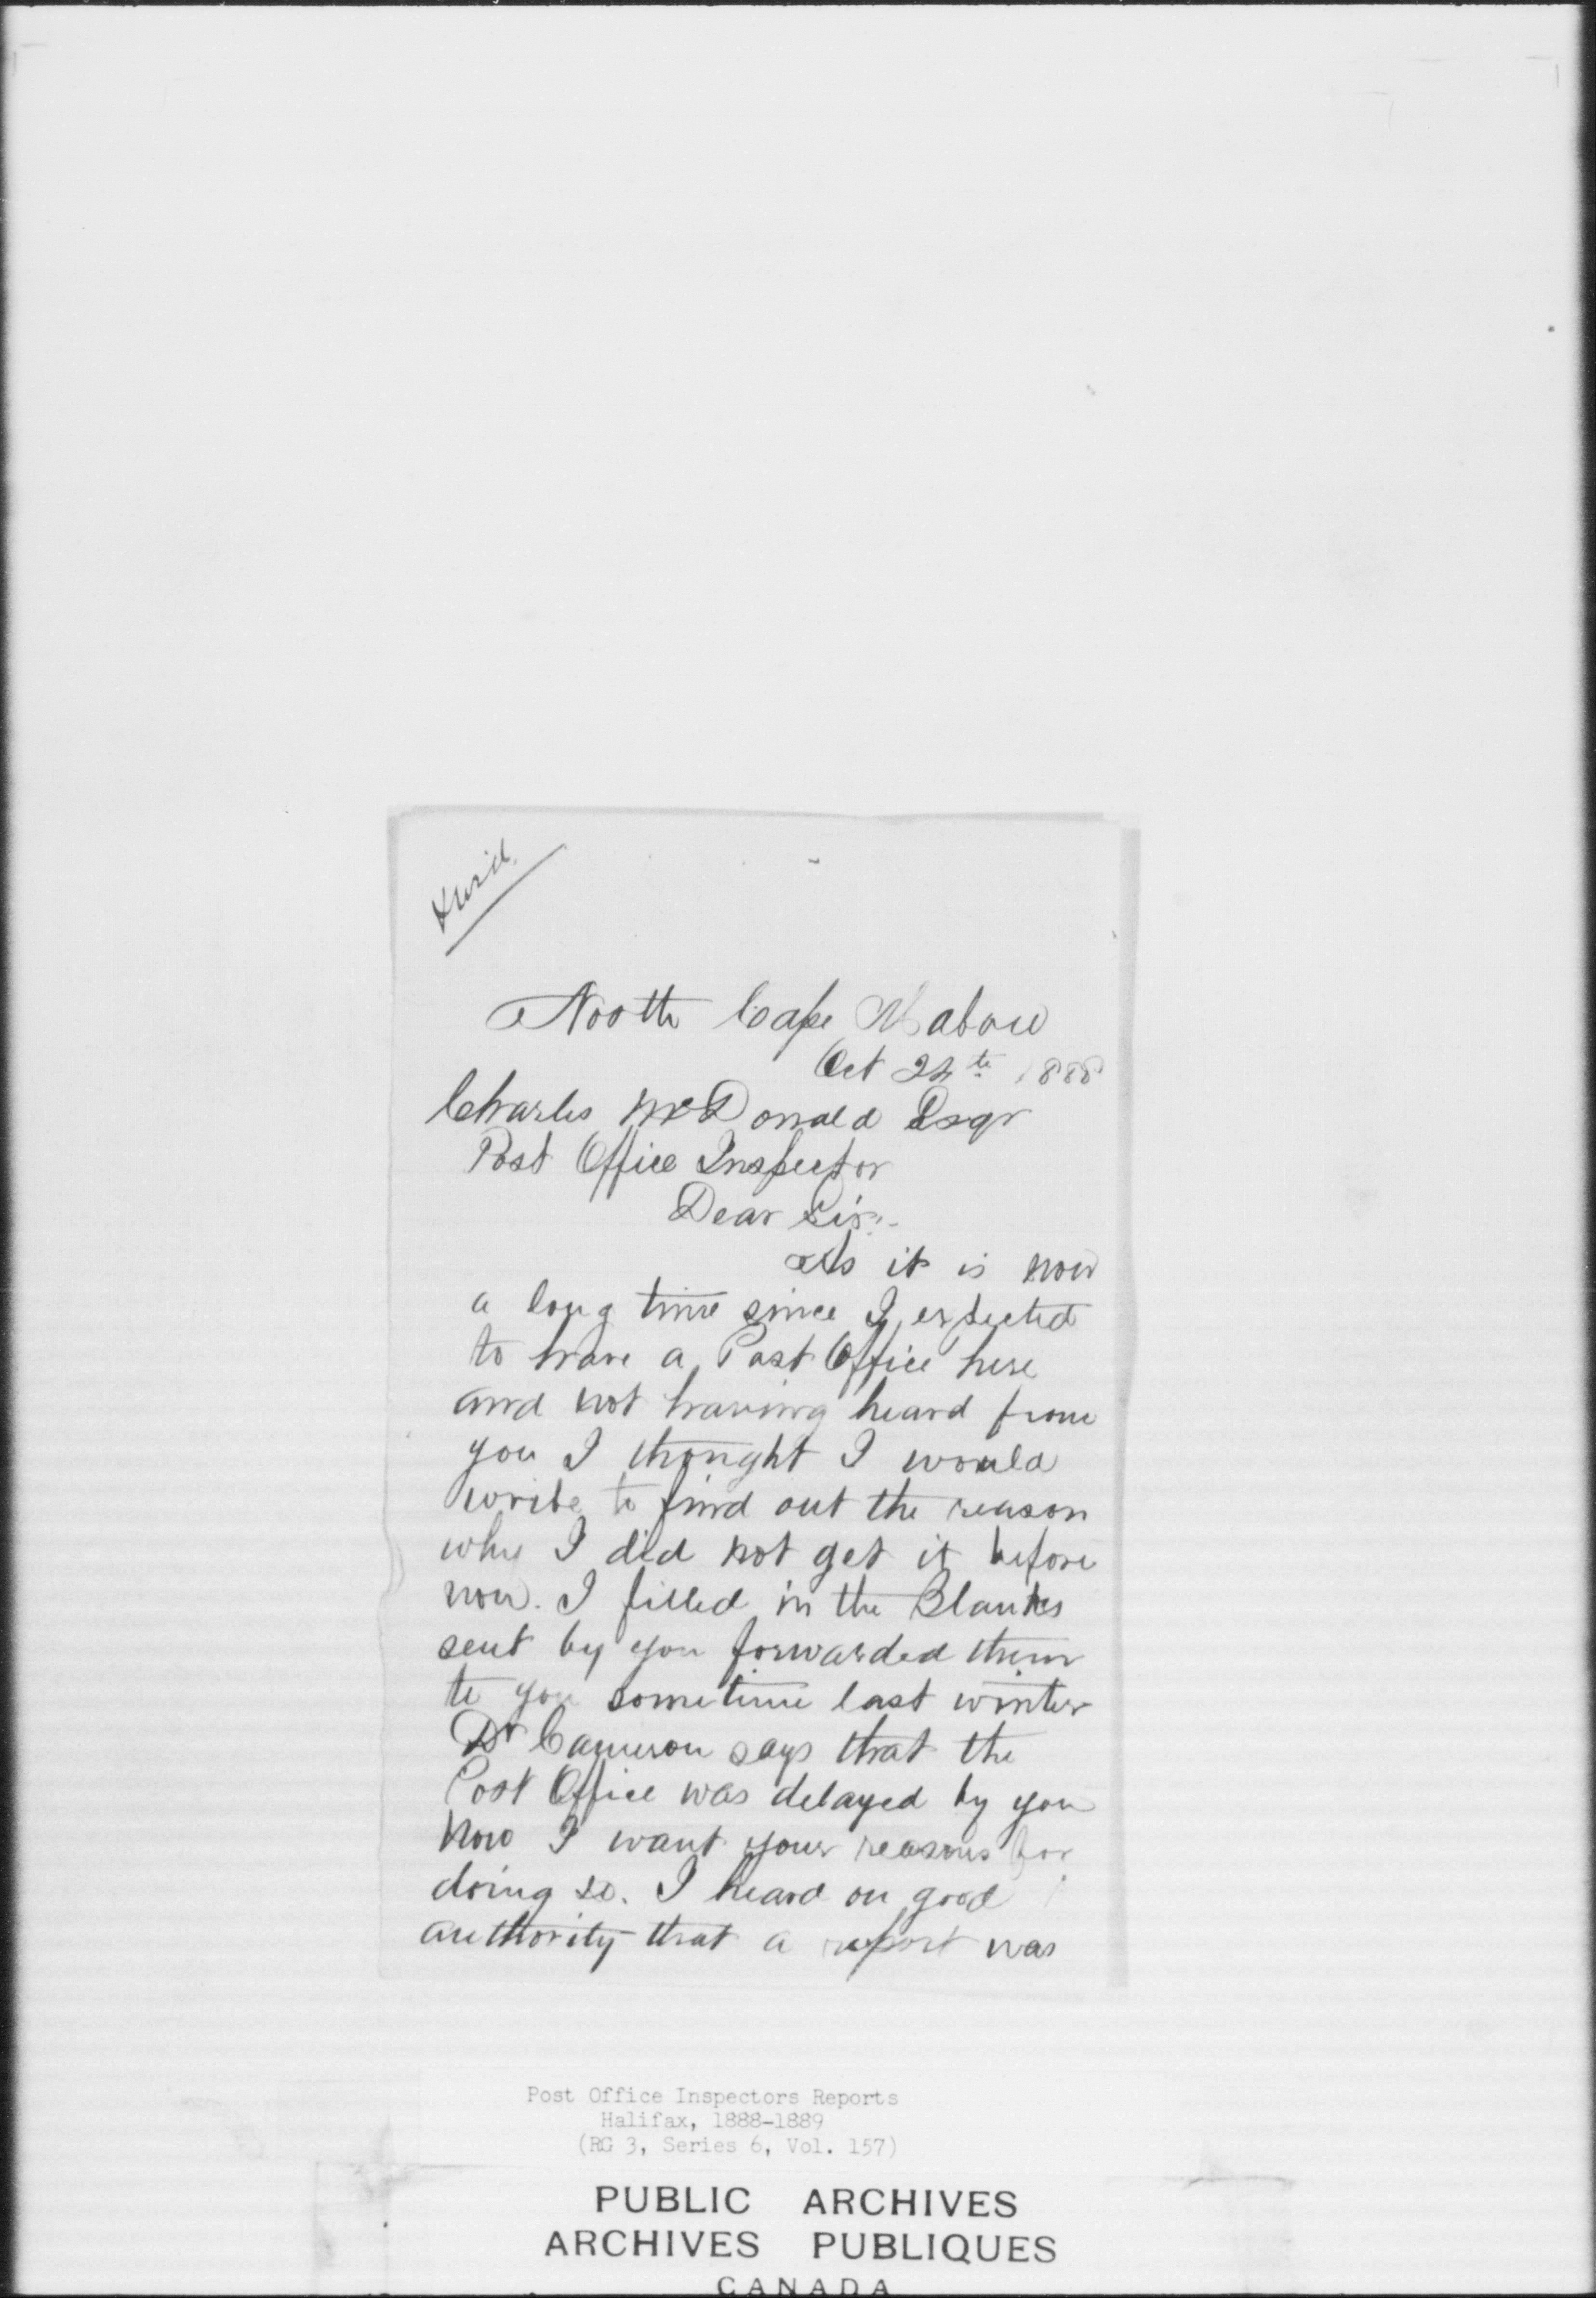 North Cape Mabou
Oct 24th 1888
Charles McDonald Esqr
Post Office Inspector
Dear Sir:-
As it is now
a long time since I expected
to have a Post Office here
and not having heard from
you I thought I would
write to find out the reason
why I did not get it before
now. I filled in the Blanks
sent by you forwarded them
to you sometime last winter
Dr Cameron says that the
Post Office was delayed by you
Now I want your reasons for
doing so. I heard on good
authority that a report was
Post Office Inspectors Reports
Halifax, 1888-1889
(RG 3, Series 6, Vol. 157)
PUBLIC ARCHIVES
ARCHIVES PUBLIQUES
CANADA